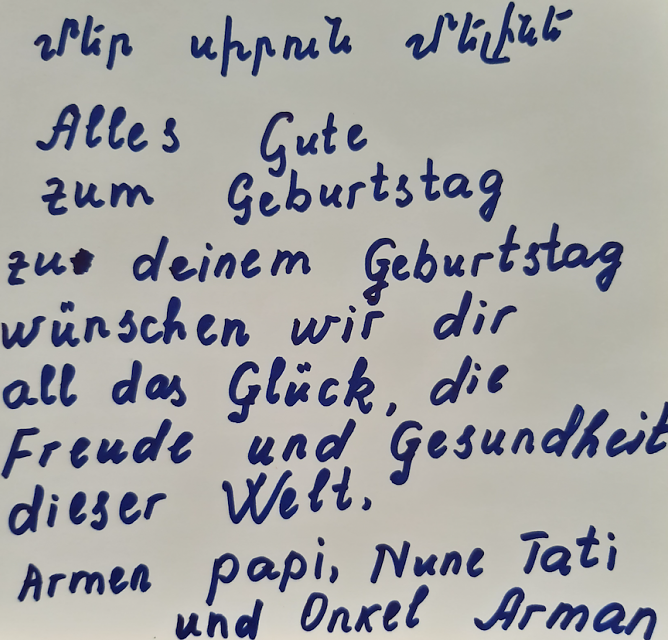 Մեր սիրուն Մելինե
Alles Gute
zum Geburtstag
zu deinem Geburtstag
wünschen wir dir
all das Glück, die
Freude und Gesundheit
dieser Welt.
Armen papi, Nune Tati
und Onkel Arman